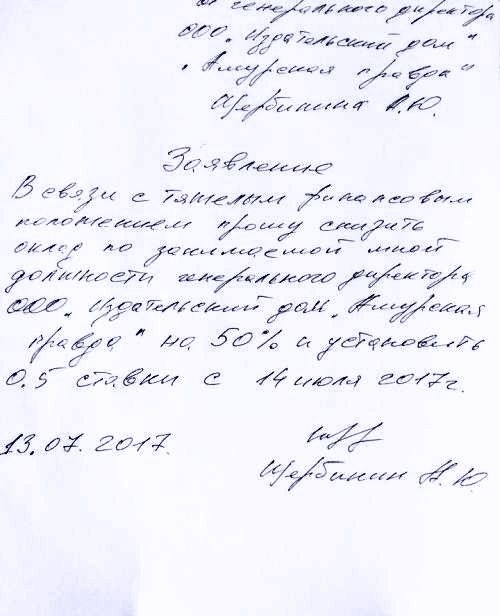 от генерального директора
ООО „Издательский дом"
„Амурская правда"
Щербинина А.Ю.
Заявление
В связи с тяжелым финансовым
положением прошу снизить
оклад по занимаемой мной
должности генерального директора
ООО „Издательский дом „Амурская
правда" на 50% и установить
0.5 ставки с 14 июля 2017г.
13.07.2017.
Щербинин А.Ю.